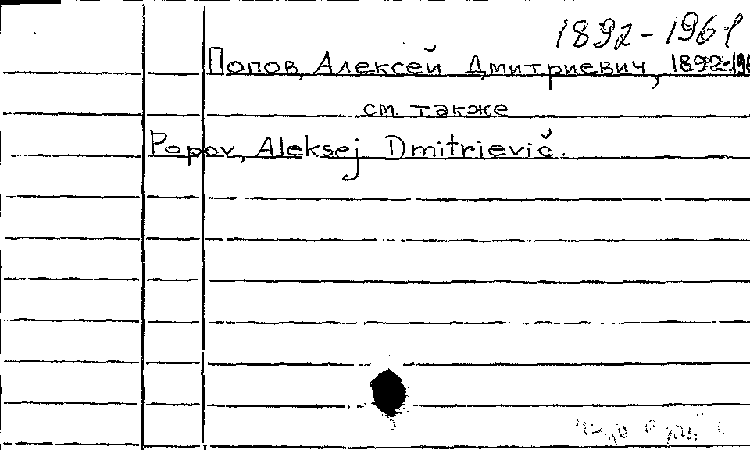 1892-1961
Попов, Алексей Дмитриевич, 1892-196
см. также
Popov, Aleksej Dmitrievič.